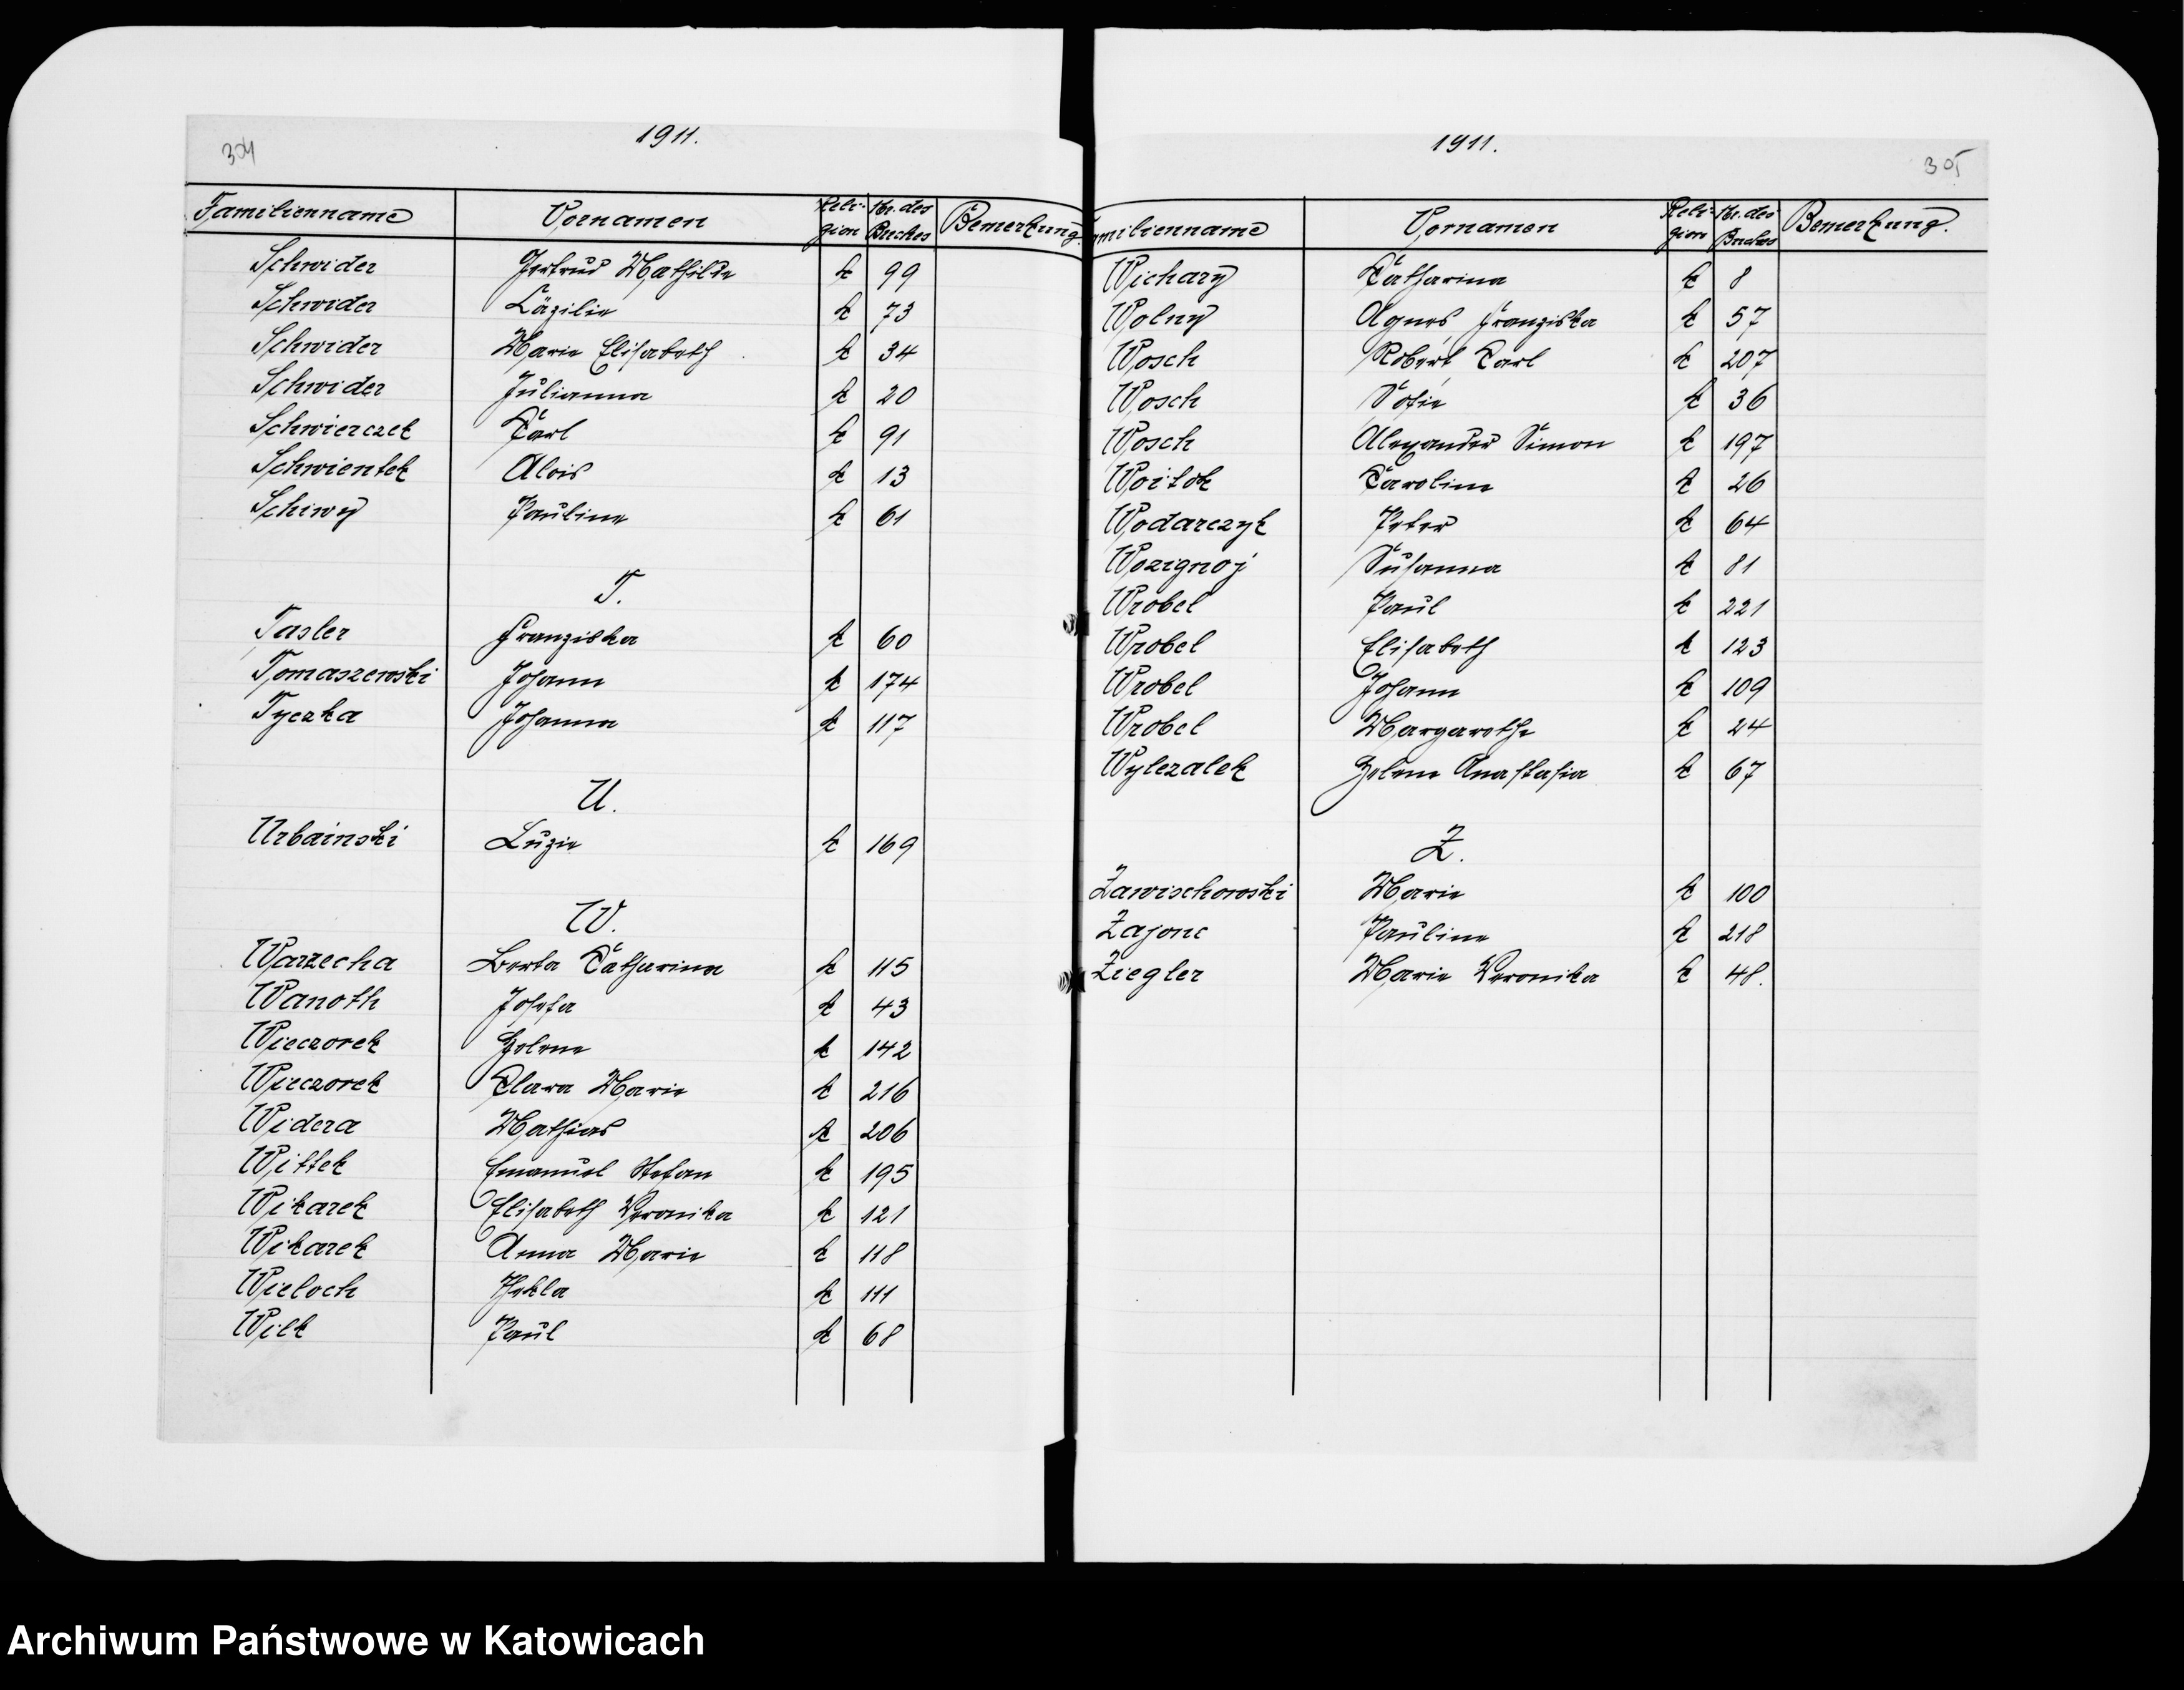 304
1911.
Familienname Vornamen Reli-gion Nr. des Buches Bemerkung.
Schwider Gertrud Mathilde k 99
Schwider Cäzilie k 73
Schwider Marie Elisabeth k 34
Schwider Julianna k 20
Schwierczek Carl k 91
Schwientek Alois k 13
Schiwy Pauline k 61
T.
Tasler Franziska k 60
Tomaszewski Johann k 174
Tyczka Johanna k 117
U.
Urbainski Luzie k 169
W.
Warzecha Berta Catharina k 115
Wanoth Josefa k 43
Wieczorek Helene k 142
Wieczorek Clara Marie k 216
Widera Mathias k 206
Wittek Emanuel Stefan k 195
Wikarek Elisabeth Veronika k 121
Wikarek Anna Marie k 118
Wieloch Thekla k 111
Wilk Paul k 68
1911.
305
Familienname Vornamen Reli-gion Nr. des Buches Bemerkung.
Wichary Catharina k 8
Wolny Agnes Franziska k 57
Wosch Robert Carl k 207
Wosch Sofie k 36
Wosch Alexander Simon k 197
Woitok Caroline k 26
Wodarczyk Peter k 64
Wozignoj Susanna k 81
Wrobel Paul k 221
Wrobel Elisabeth k 123
Wrobel Johann k 109
Wrobel Margarethe k 24
Wylezalek Helene Anastasia k 67
Z.
Zawischowski Marie k 100
Zajonc Pauline k 218
Ziegler Marie Veronika k 48.
Archiwum Państwowe w Katowicach